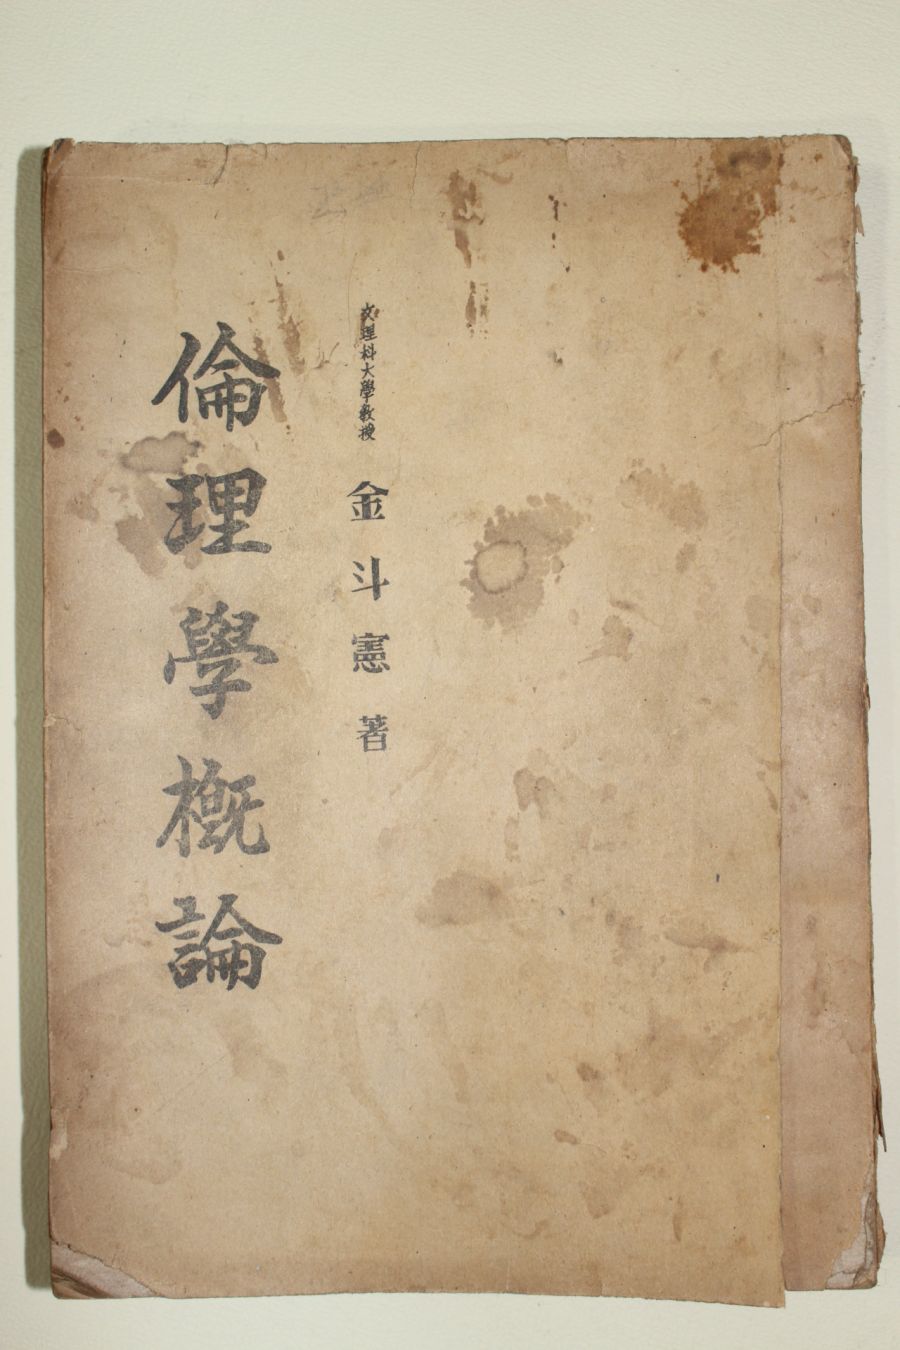 文理科大學敎授 金斗憲 著
倫理學槪論